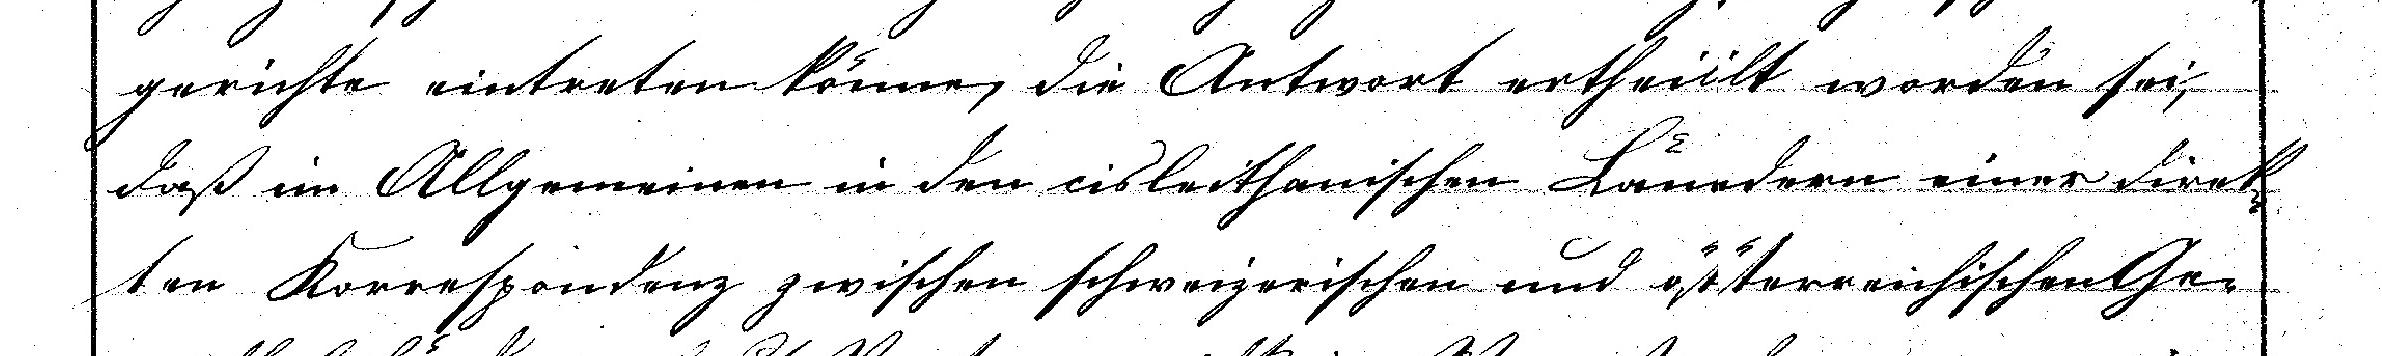 gerichte eintreten könne, die Antwort ertheilt worden sei,
daß im Allgemeinen in den cisleithanischen Ländern einer direk-
ten Korrespondenz zwischen schweizerischen und österreichischen Ge-